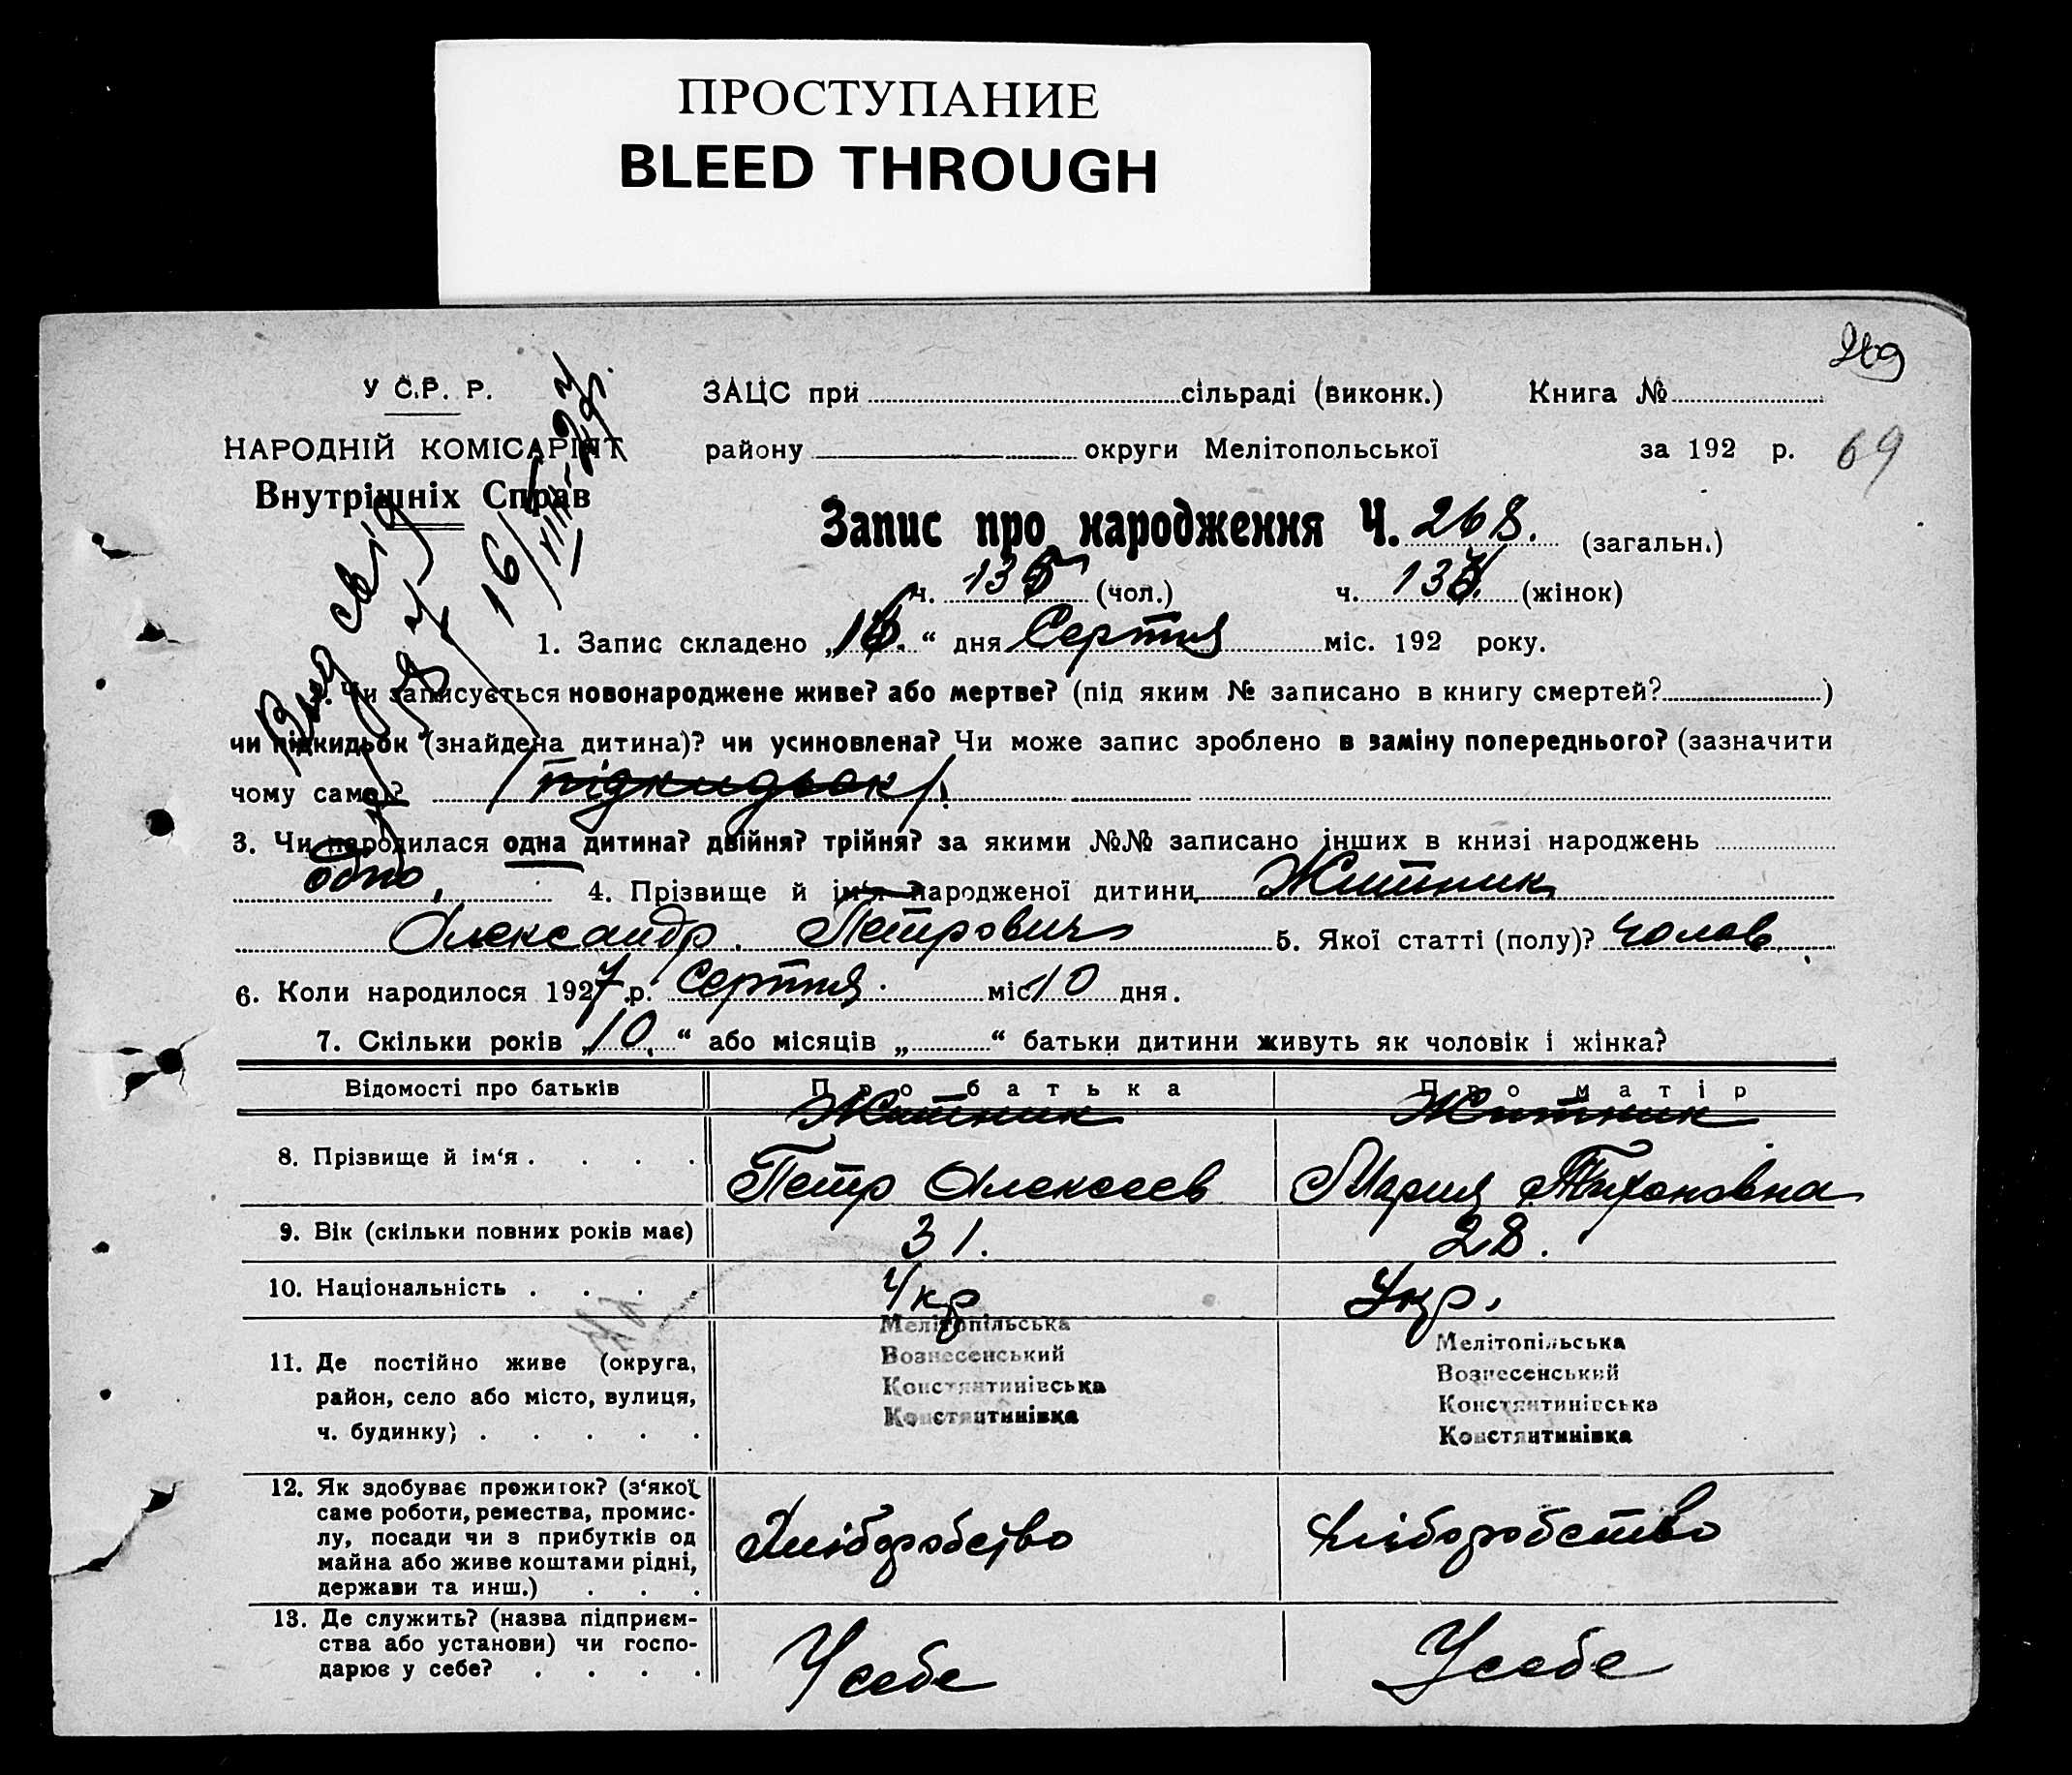 ПРОСТУПАНИЕ
BLEED THROUGH
269
У С.Р. Р.
ЗАЦС при сільраді (виконк.) Книга №
НАРОДНІЙ КОМІСАРІЯТ
району округи Мелітопольської за 192 р. 69
Внутрішніх Справ
Запис про народження Ч. 268. (загальн.)
ч. 135 (чол.) ч. 13 (жінок)
16/VIII-27р.
1. Запис складено „16.“ дня Серпня міс. 192 року.
Чи записується новонароджене живе? або мертве? (під яким № записано в книгу смертей? )
чи підкидьок (знайдена дитина)? чи усиновлена? Чи може запис зроблено в заміну попереднього? (зазначити
чому саме)? підкидьок
3. Чи народилася одна дитина? двійня? трійня? за якими №№ записано інших в книзі народжень
одно, 4. Прізвище й ім‘я народженої дитини Житник
Олександр. Петрович 5. Якої статті (полу)? чолов.
6. Коли народилося 1927 р. Серпня міс 10 дня.
7. Скільки років „10.“ або місяців „ “ батьки дитини живуть як чоловік і жінка?
Відомості про батьків Про батька Про матір
Житник Житник
8. Прізвище й ім‘я . . . . Петр Олексеев Мария Тихоновна
9. Вік (скільки повних років має) 31. 28.
10. Національність . . . . Укр Укр.
Мелітопільська Мелітопільська
11. Де постійно живе (округа, Вознесенський Вознесенський
район, село або місто, вулиця, Константинівська Константинівська
ч. будинку) . . . . . Константинівка Константинівка
12. Як здобуває прожиток? (з‘якої
саме роботи, ремества, промис-
лу, посади чи з прибутків од Хліборобство Хліборобство
майна або живе коштами рідні,
держави та инш.) . . .
13. Де служить? (назва підприєм-
ства або установи) чи госпо- У себе У себе
дарює у себе? . . . .